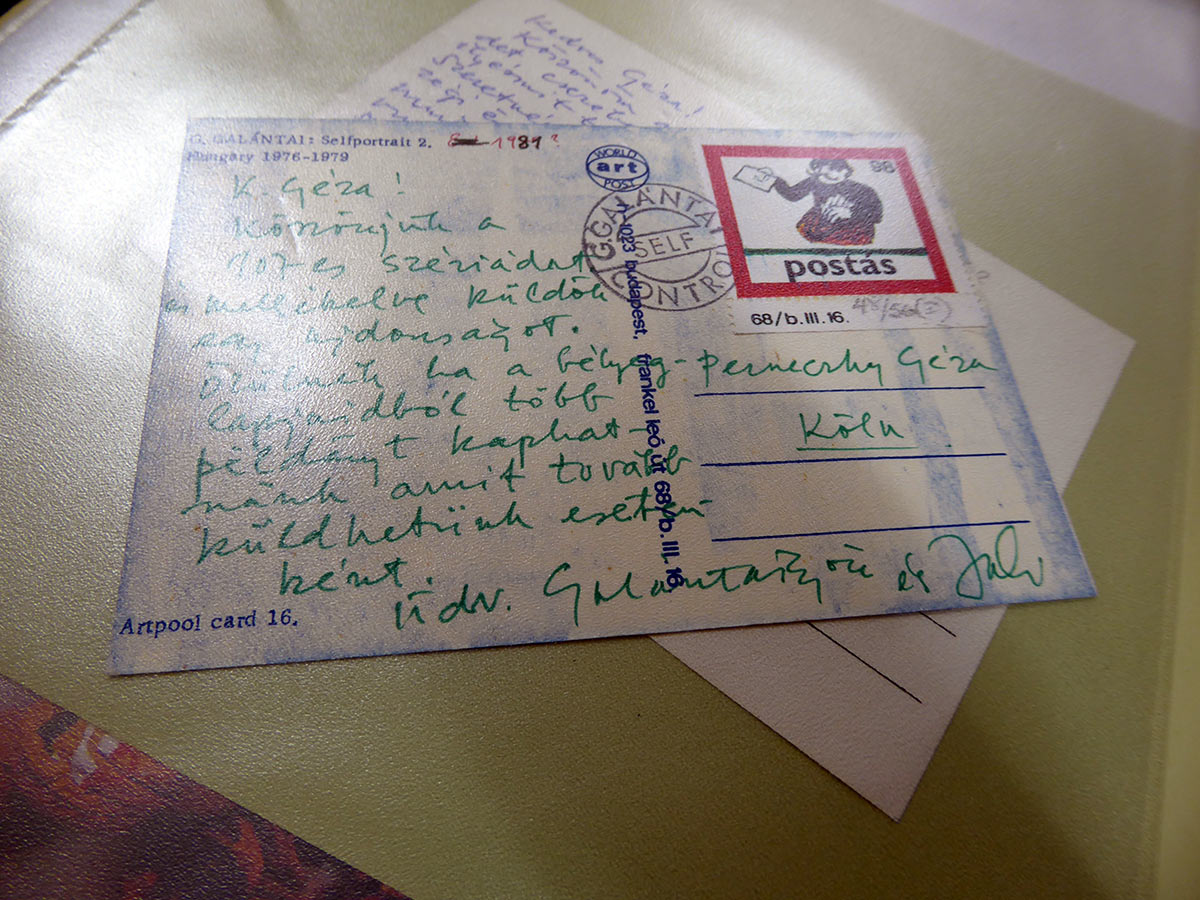 Kedves Géza!
G. GALÁNTAI: Selfportrait 2.
1981?
Hungary 1976-1979
K. Géza!
Köszönjük a
szériádat
és mellékelve küldök
egy ujdonságot.
Örülnénk ha a bélyeg-
lapjaidból több
példányt kaphat-
nánk amit tovább
küldhetünk eseten-
ként.
Üdv. Galántai György és Juli
Artpool card 16.
WORLD
art
POST
G. GALÁNTAI
SELF
CONTROL
H-1023 budapest, frankel leó út 68/b. III. 16
98
postás
68/b.III.16.
Perneczky Géza
Köln